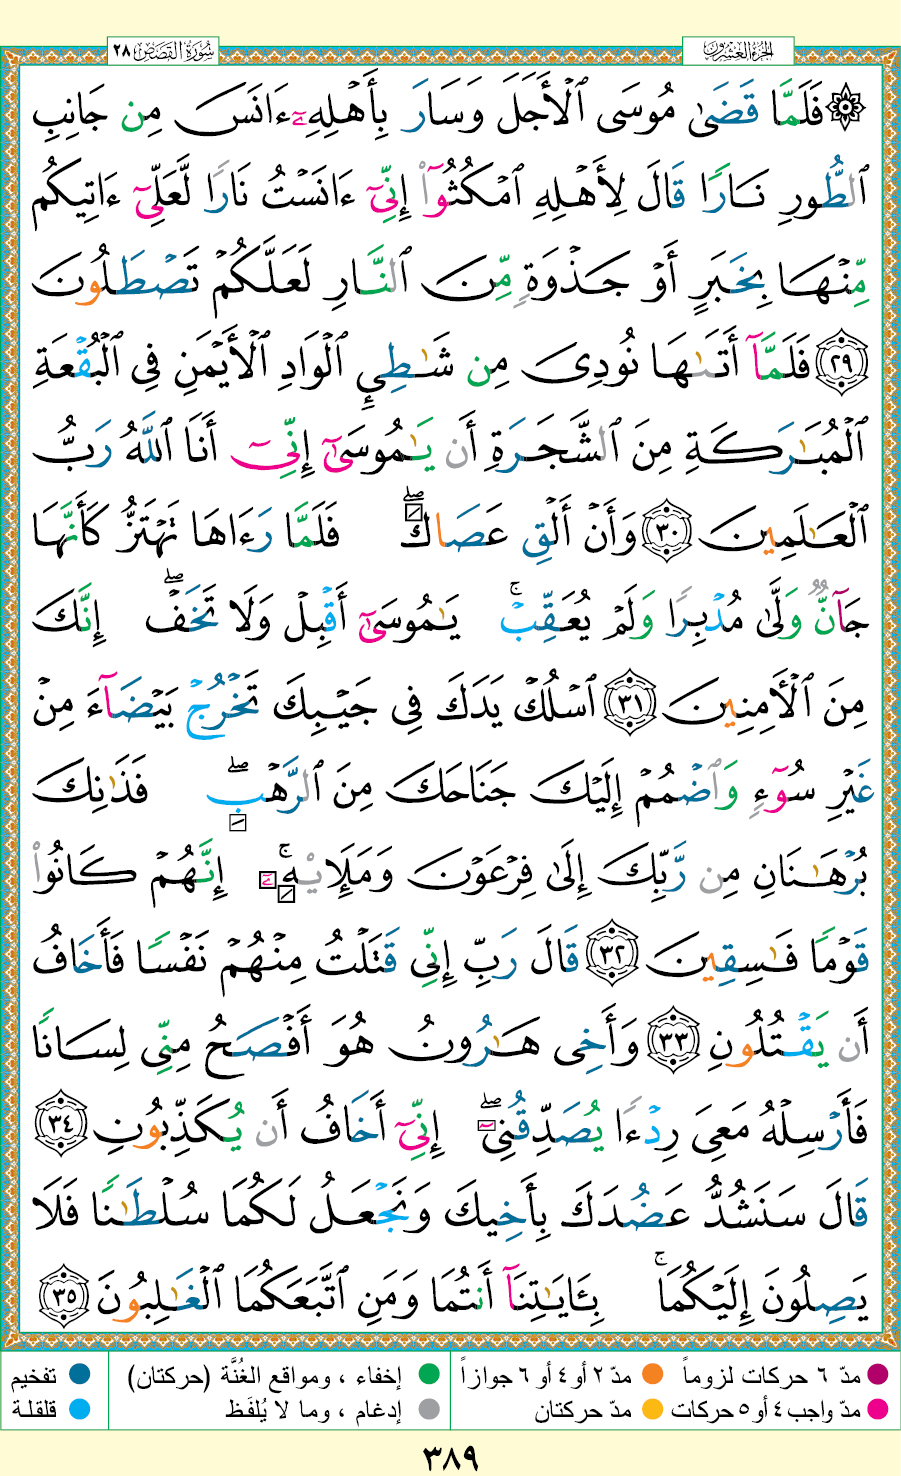 سُورَةُ القَصَصِ ٢٨
الجُزءُ العِشرُونَ
۞ فَلَمَّا قَضَىٰ مُوسَى ٱلْأَجَلَ وَسَارَ بِأَهْلِهِۦٓ ءَانَسَ مِن جَانِبِ
ٱلطُّورِ نَارًا قَالَ لِأَهْلِهِ ٱمْكُثُوٓا۟ إِنِّىٓ ءَانَسْتُ نَارًا لَّعَلِّىٓ ءَاتِيكُم
مِّنْهَا بِخَبَرٍ أَوْ جَذْوَةٍ مِّنَ ٱلنَّارِ لَعَلَّكُمْ تَصْطَلُونَ
٢٩ فَلَمَّآ أَتَىٰهَا نُودِىَ مِن شَـٰطِئِ ٱلْوَادِ ٱلْأَيْمَنِ فِى ٱلْبُقْعَةِ
ٱلْمُبَـٰرَكَةِ مِنَ ٱلشَّجَرَةِ أَن يَـٰمُوسَىٰٓ إِنِّىٓ أَنَا ٱللَّهُ رَبُّ
ٱلْعَـٰلَمِينَ ٣٠ وَأَنْ أَلْقِ عَصَاكَ ۖ فَلَمَّا رَءَاهَا تَهْتَزُّ كَأَنَّهَا
جَآنٌّ وَلَّىٰ مُدْبِرًا وَلَمْ يُعَقِّبْ ۚ يَـٰمُوسَىٰٓ أَقْبِلْ وَلَا تَخَفْ ۖ إِنَّكَ
مِنَ ٱلْـَٔامِنِينَ ٣١ ٱسْلُكْ يَدَكَ فِى جَيْبِكَ تَخْرُجْ بَيْضَآءَ مِنْ
غَيْرِ سُوٓءٍ وَٱضْمُمْ إِلَيْكَ جَنَاحَكَ مِنَ ٱلرَّهْبِ ۖ فَذَٰنِكَ
بُرْهَـٰنَانِ مِن رَّبِّكَ إِلَىٰ فِرْعَوْنَ وَمَلَإِي۟هِۦٓ ۚ إِنَّهُمْ كَانُوا۟
قَوْمًا فَـٰسِقِينَ ٣٢ قَالَ رَبِّ إِنِّى قَتَلْتُ مِنْهُمْ نَفْسًا فَأَخَافُ
أَن يَقْتُلُونِ ٣٣ وَأَخِى هَـٰرُونُ هُوَ أَفْصَحُ مِنِّى لِسَانًا
فَأَرْسِلْهُ مَعِىَ رِدْءًا يُصَدِّقُنِىٓ ۖ إِنِّىٓ أَخَافُ أَن يُكَذِّبُونِ ٣٤
قَالَ سَنَشُدُّ عَضُدَكَ بِأَخِيكَ وَنَجْعَلُ لَكُمَا سُلْطَـٰنًا فَلَا
يَصِلُونَ إِلَيْكُمَا ۚ بِـَٔايَـٰتِنَآ أَنتُمَا وَمَنِ ٱتَّبَعَكُمَا ٱلْغَـٰلِبُونَ ٣٥
مدّ ٦ حركات لزوماً مدّ ٢ أو ٤ أو ٦ جوازاً إخفاء ، ومواقع الغُنَّة (حركتان) تفخيم
مدّ واجب ٤ أو ٥ حركات مدّ حركتان إدغام ، وما لا يُلفَظ قلقلة
٣٨٩